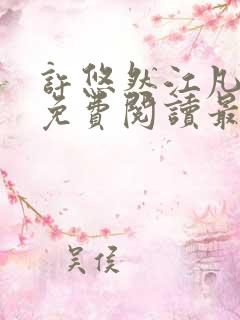 許悠然江凡
免費閱讀最
吴侯